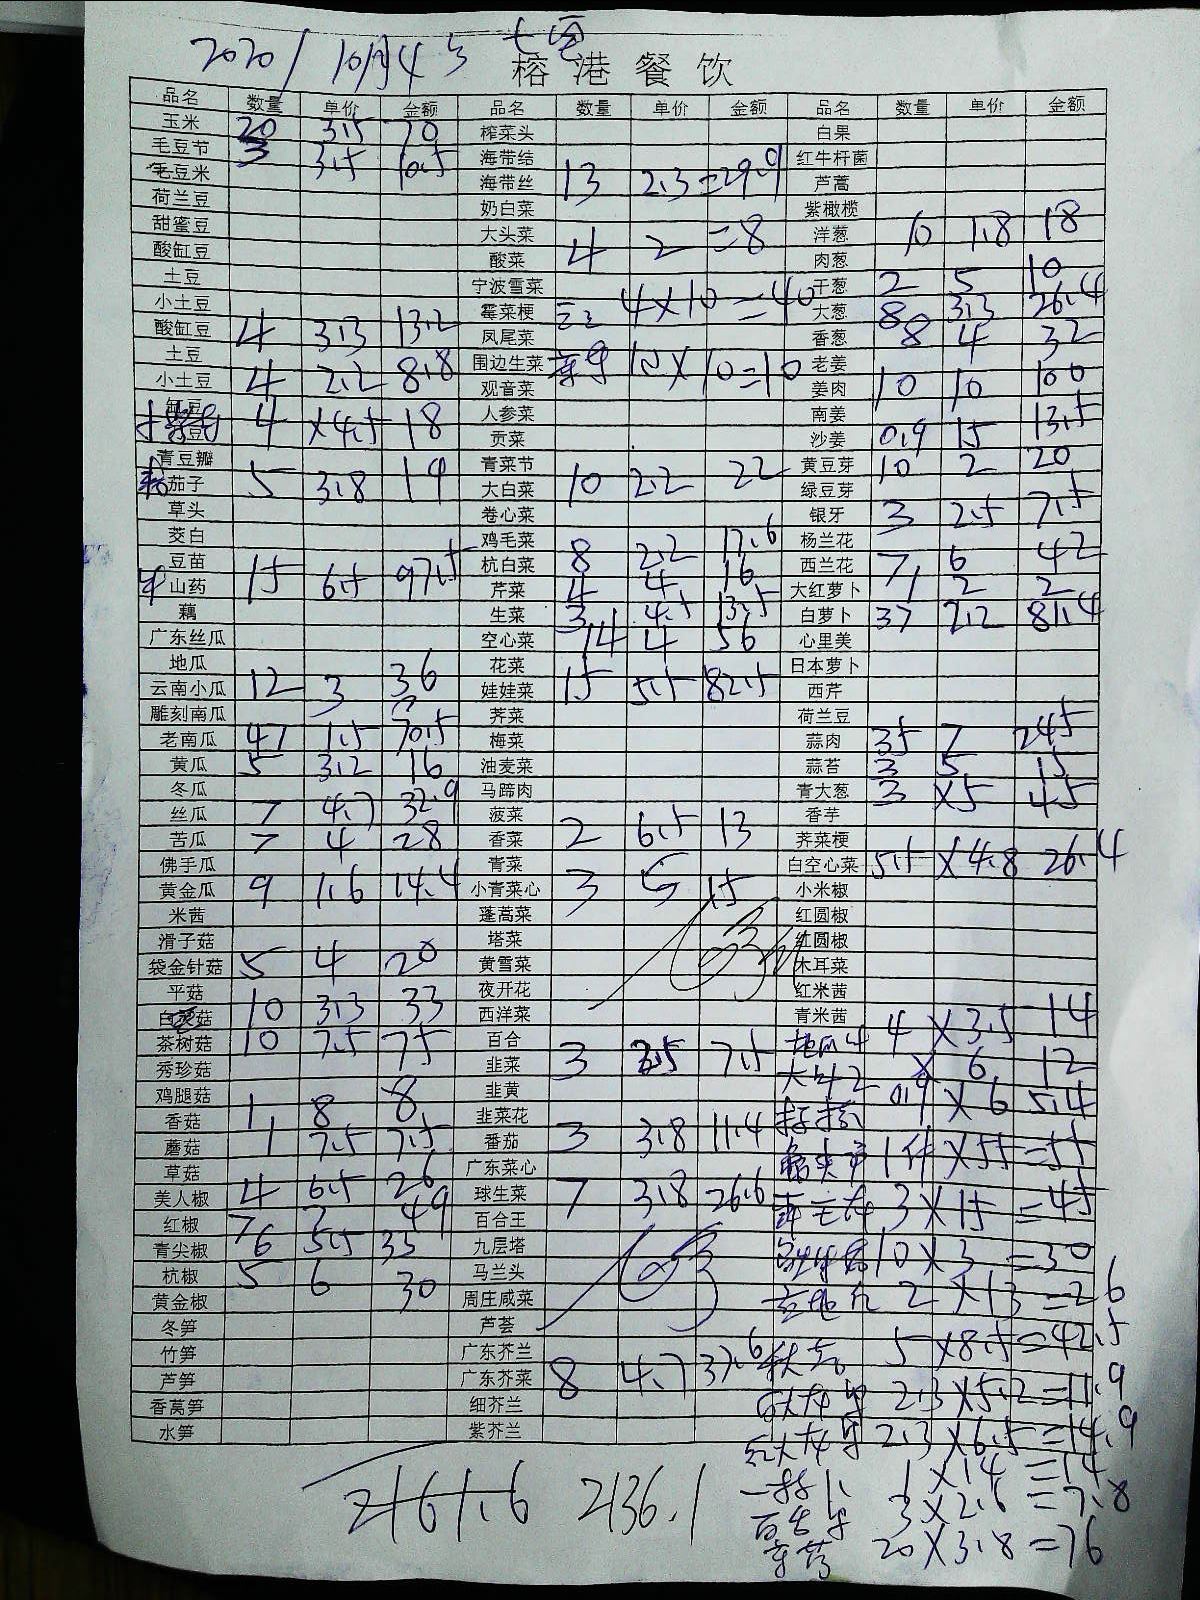 2020/10月4号
榕港餐饮
品名 数量 单价 金额 品名 数量 单价 金额 品名 数量 单价 金额
玉米 20 3.5 70 榨菜头 白果
毛豆节 3 3.5 10.5 海带结 红牛杆菌
毛豆米 海带丝 13 2.3 =29.9 芦蒿
荷兰豆 奶白菜 紫橄榄
甜蜜豆 大头菜 4 2 =8 洋葱 10 1.8 18
酸缸豆 酸菜 肉葱
土豆 宁波雪菜 干葱 2 5 10
小土豆 霉菜梗 4×10=40 大葱 8 3.3 26.4
酸缸豆 4 3.3 13.2 凤尾菜 香葱 8 4 32
土豆 围边生菜 10×10=10 老姜
小土豆 4 2.2 8.8 观音菜 姜肉 10 10 100
缸豆 人参菜 南姜
豆 4 ×4.5 18 贡菜 沙姜 0.9 15 13.5
青豆瓣 青菜节 黄豆芽 10 2 20
茄子 5 3.8 19 大白菜 10 2.2 22 绿豆芽
草头 卷心菜 银牙 3 2.5 7.5
茭白 鸡毛菜 杨兰花
豆苗 杭白菜 8 2.2 17.6 西兰花 7 6 42
山药 15 6.5 97.5 芹菜 4 4 16 大红萝卜 1 2 2
藕 生菜 3 4.5 13.5 白萝卜 37 2.2 81.4
广东丝瓜 空心菜 14 4 56 心里美
地瓜 花菜 日本萝卜
云南小瓜 12 3 36 娃娃菜 15 5.5 82.5 西芹
雕刻南瓜 荠菜 荷兰豆
老南瓜 47 1.5 70.5 梅菜 蒜肉 35 7 245
黄瓜 5 3.2 16 油麦菜 蒜苔 3 5 15
冬瓜 马蹄肉 青大葱 3 ×5 45
丝瓜 7 4.7 32.9 菠菜 香芋
苦瓜 7 4 28 香菜 2 6.5 13 荠菜梗
佛手瓜 青菜 白空心菜 5.5 ×4.8 26.4
黄金瓜 9 1.6 14.4 小青菜心 3 5 15 小米椒
米茜 蓬蒿菜 红圆椒
滑子菇 塔菜 红圆椒
袋金针菇 5 4 20 黄雪菜 木耳菜
平菇 夜开花 红米茜
白灵菇 10 3.3 33 西洋菜 青米茜
茶树菇 10 7.5 75 百合 4×3.5 14
秀珍菇 韭菜 3 2.5 7.5 ×6 12
鸡腿菇 韭黄 0.9×6 5.4
香菇 1 8 8 韭菜花
蘑菇 1 7.5 7.5 番茄 3 3.8 11.4 1件×55=55
草菇 广东菜心
美人椒 4 6.5 26 球生菜 7 3.8 26.6 3×15=45
红椒 7 7 49 百合王
青尖椒 6 5.5 33 九层塔 10×3=30
杭椒 5 6 30 马兰头
黄金椒 周庄咸菜 2×13=26
冬笋 芦荟
竹笋 广东芥兰 5×8.5=42.5
芦笋 广东芥菜 8 4.7 37.6 2.3×5.2=11.9
香莴笋 细芥兰
水笋 紫芥兰 2.3×6.5=14.9
1×14=14
3×2.6=7.8
20×3.8=76
2161.6 2136.1